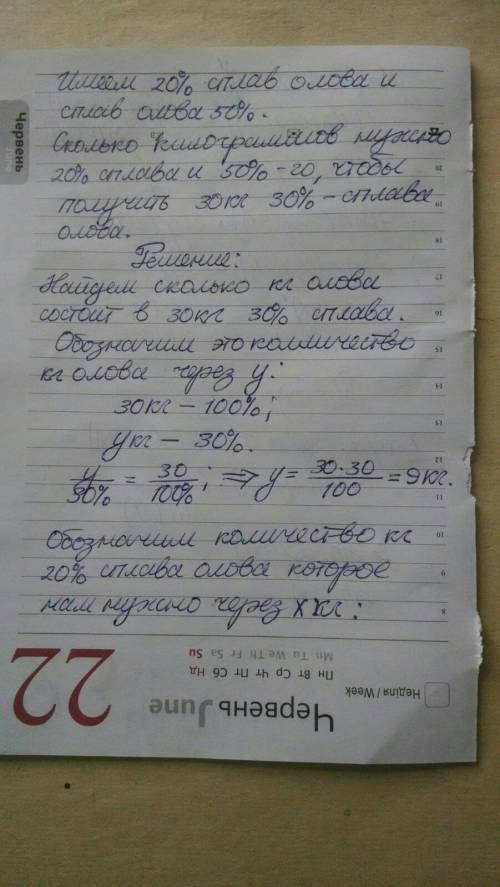 Имеем 20% сплав олова и
сплав олова 50%.
Сколько килограммов нужно
20% сплава и 50%-го, чтобы
получить 30кг 30%-сплава
олова.
Решение:
Найдем сколько кг олова
состоит в 30кг 30% сплава.
Обозначим это колличество
кг олова через y:
30кг – 100%;
yкг – 30%.
y/30% = 30/100%; => y = 30·30/100 = 9кг.
Обозначим количество кг
20% сплава олова которое
нам нужно через x кг:
Червень
June
20
19
18
17
16
15
14
13
12
11
10
9
8
22
Mn Tu We Th Fr Sa Su
Пн Вт Ср Чт Пт Сб Нд
Червень June
Неділя / Week